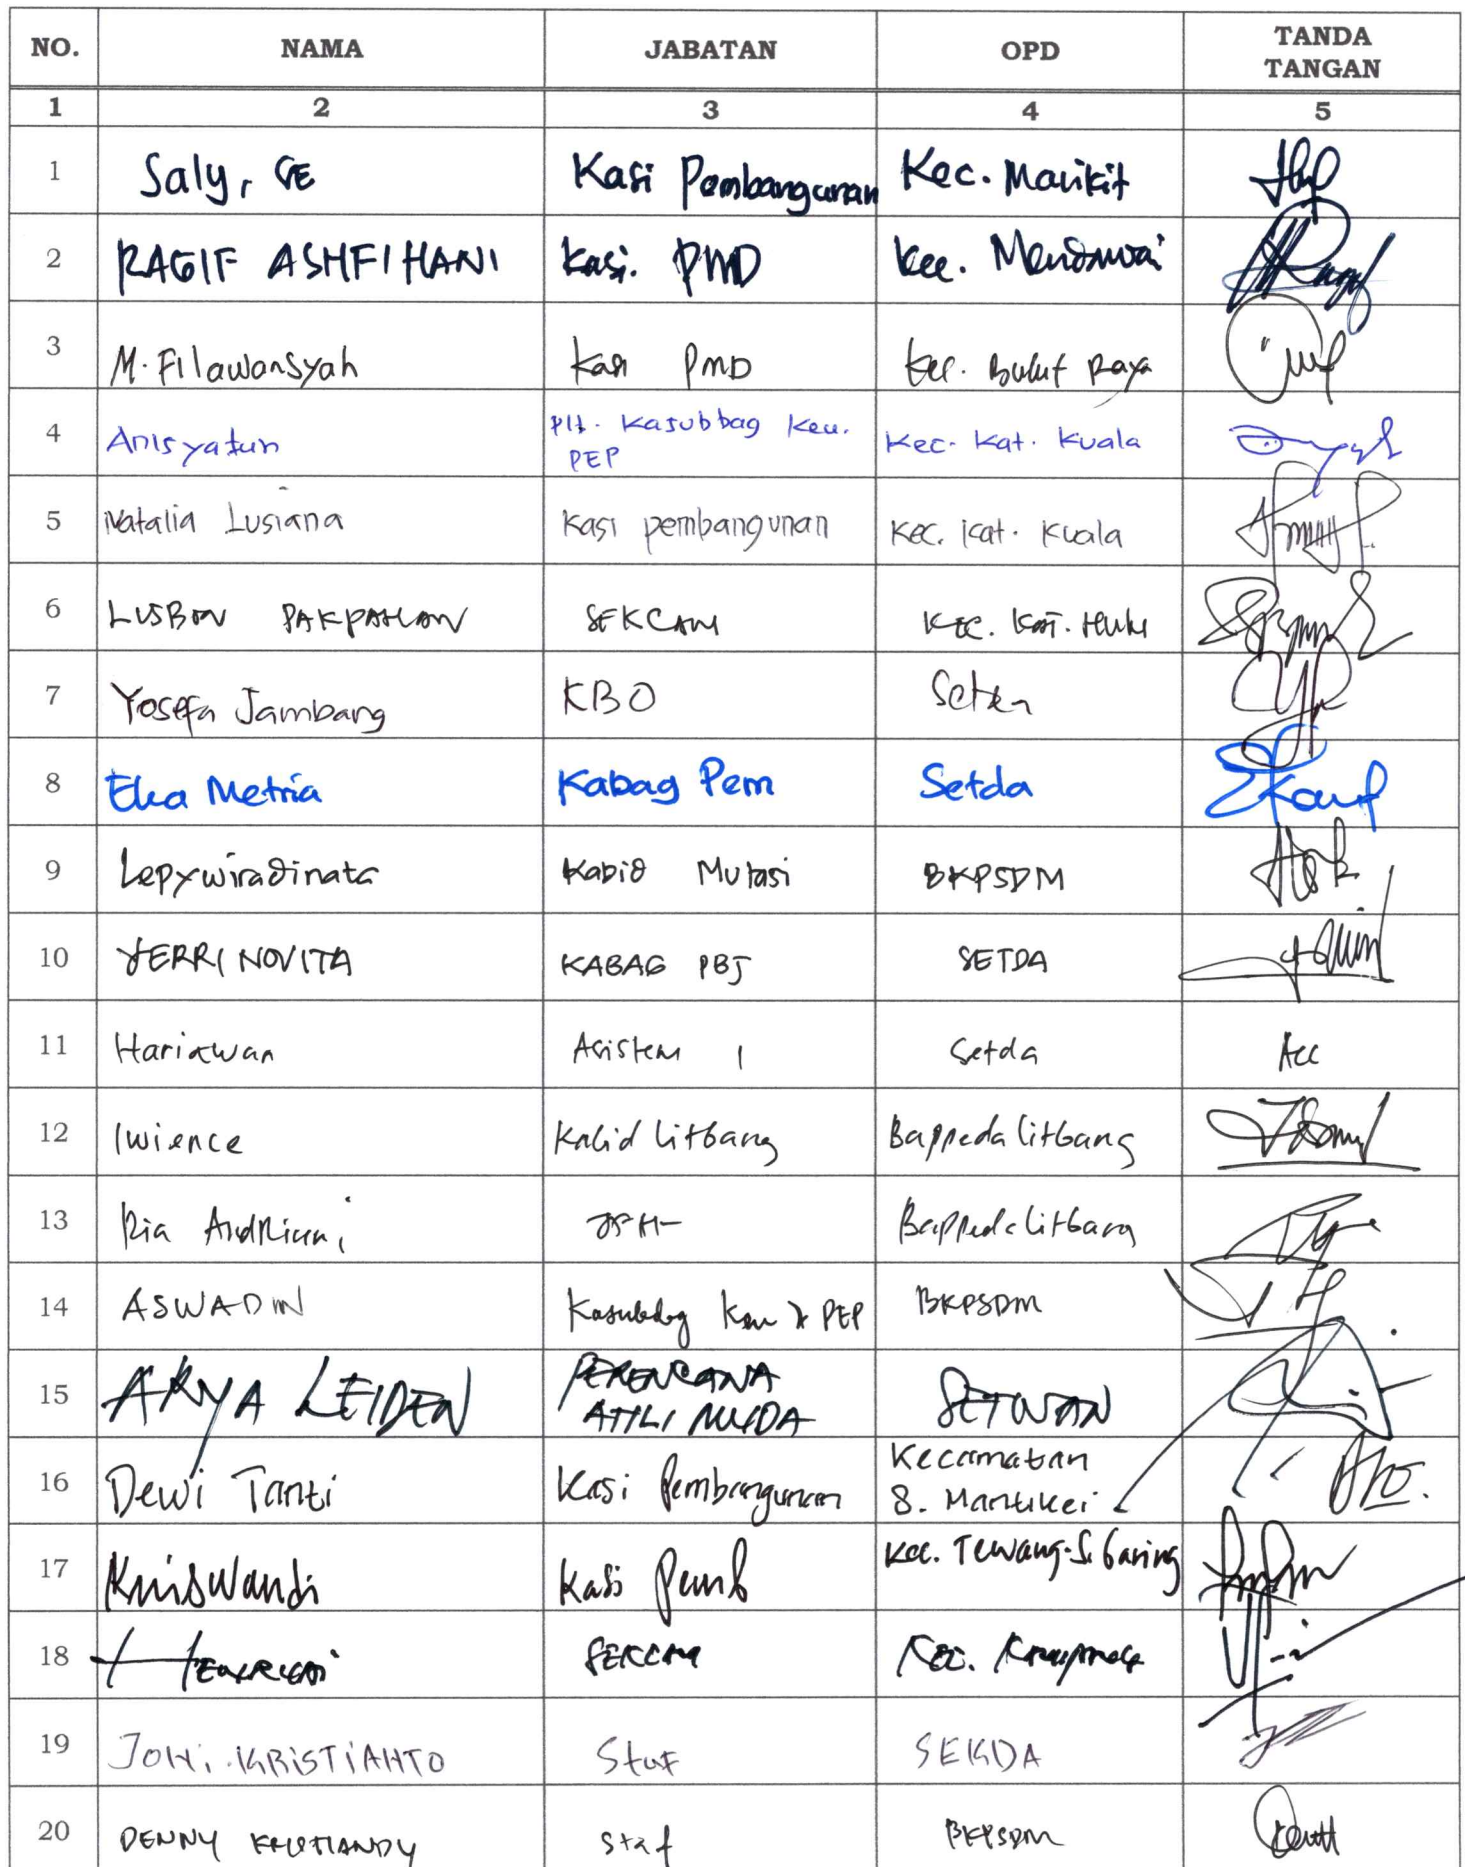 NO. NAMA JABATAN OPD TANDA TANGAN
1 2 3 4 5
1 Saly, SE Kasi Pembangunan Kec. Marikit
2 RAGIF ASHFIHANI Kasi. PMD Kec. Mendawai
3 M. Filawansyah Kasi PMD Kec. Bukit Raya
4 Anisyatun Plt. Kasubbag Keu. PEP Kec. Kat. Kuala
5 Natalia Lusiana Kasi pembangunan Kec. Kat. Kuala
6 LUSBON PAKPAHAN SEKCAM Kec. Kat. Hulu
7 Yosefa Jambang KBO
8 Eka Metria Kabag Pem Setda
9 Lepywiradinata Kabid Mutasi BKPSDM
10 YERRI NOVITA KABAG PBJ SETDA
11 Hariawan Asisten 1 Setda Acc
12 Iwience Kabid Litbang Bappedalitbang
13 Ria Andriani Bappedalitbang
14 ASWADIN Kasubbag Keu & PEP BKPSDM
15 ARYA LEIDEN PERENCANA AHLI MUDA SETWAN
16 Dewi Tanti Kasi Pembangunan Kecamatan S. Mantikei
17 Kriswandi Kasi Pemb Kec. Tewang S. Garing
18 SEKCAM Kec.
19 JONI KRISTIANTO Staf SEKDA
20 DENNY KRISTIANDY Staf BKPSDM